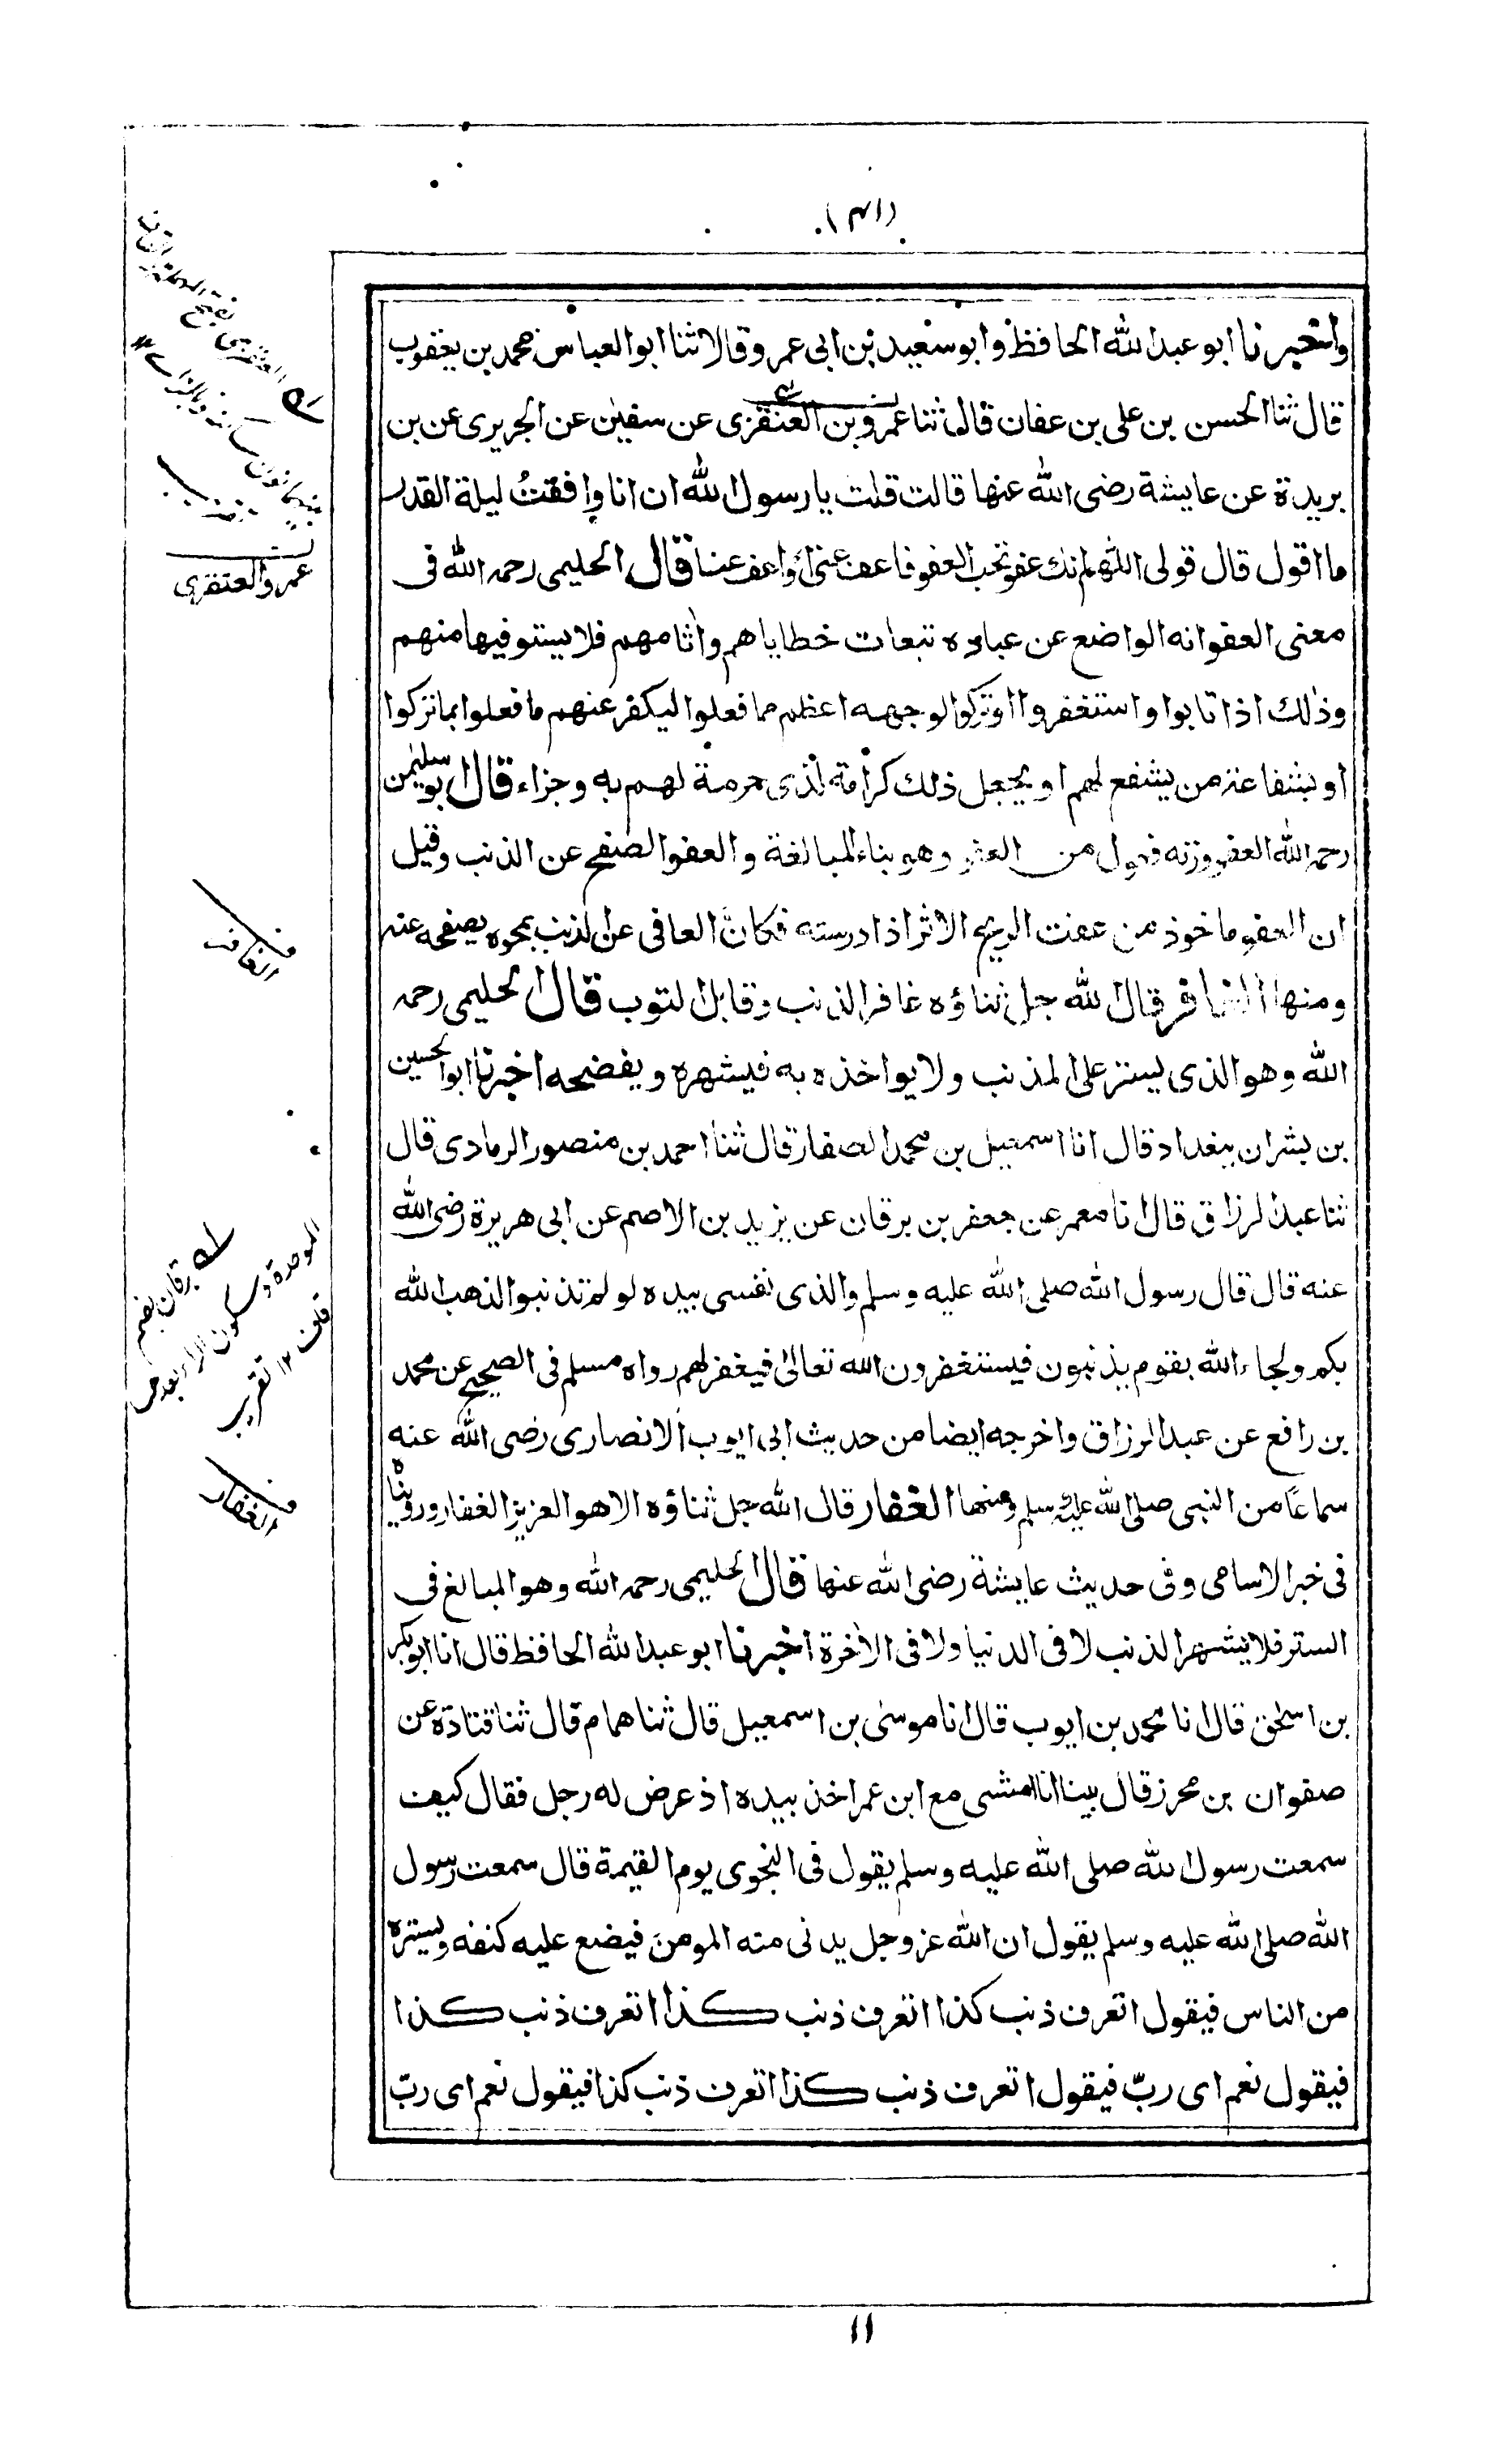 (۴۱)
واخبرنا ابو عبد الله الحافظ وابو سعيد بن ابى عمرو قالا ثنا ابو العباس محمد بن يعقوب
قال ثنا الحسن بن على بن عفان قال ثنا عمرو بن العنقزى عن سفين عن الجريرى عن بن
بريدة عن عايشة رضى الله عنها قالت قلت يا رسول الله ان انا وافقت ليلة القدر
ما اقول قال قولى اللهم انك عفو تحب العفو فاعف عنى او اعف عنا قال الحليمى رحمه الله فى
معنى العفو انه الواضع عن عباده تبعات خطاياهم واٰثامهم فلا يستوفيها منهم
وذٰلك اذا تابوا واستغفروا او تركوا لوجهه اعظم مما فعلوا ليكفر عنهم ما فعلوا بما تركوا
او بشفاعة من يشفع لهم او يجعل ذلك كرامة لذى حرمة لهم به وجزاء قال ابو سليمٰن
رحمه الله العفو وزنه فعول من العفو وهو بناء المبالغة والعفو الصفح عن الذنب وقيل
ان العفو ماخوذ من عفت الريح الاثر اذا درسته فكانّ العافى عن الذنب يمحوه بصفحه عنه
ومنها الغافر قال الله جل ثناؤه غافر الذنب وقابل التوب قال الحليمى رحمه
الله وهو الذى يستر على المذنب ولا يواخذه به فيشهره ويفضحه اخبرنا ابو الحسين
بن بشران ببغداد قال انا اسمعيل بن محمد الصفار قال ثنا احمد بن منصور الرمادى قال
ثنا عبد الرزاق قال انا معمر عن جعفر بن برقان عن يزيد بن الاصم عن ابى هريرة رضى الله
عنه قال قال رسول الله صلى الله عليه وسلم والذى نفسى بيده لو لم تذنبوا لذهب الله
بكم ولجاء الله بقوم يذنبون فيستغفرون الله تعالىٰ فيغفر لهم رواه مسلم فى الصحيح عن محمد
بن رافع عن عبد الرزاق واخرجه ايضا من حديث ابى ايوب الانصارى رضى الله عنه
سماعًا من النبى صلى الله عليه وسلم ومنها الغفار قال الله جل ثناؤه الا هو العزيز الغفار ورويناه
فى خبر الاسامى وفى حديث عايشة رضى الله عنها قال الحليمى رحمه الله وهو المبالغ فى
الستر فلا يشهر الذنب لا فى الدنيا ولا فى الاٰخرة اخبرنا ابو عبد الله الحافظ قال انا ابو بكر
بن اسحٰق قال انا محمد بن ايوب قال انا موسىٰ بن اسمعيل قال ثنا همام قال ثنا قتادة عن
صفوان بن محرز قال بينا انا امشى مع ابن عمر اخذ بيده اذ عرض له رجل فقال كيف
سمعت رسول الله صلى الله عليه وسلم يقول فى النجوى يوم القيمة قال سمعت رسول
الله صلى الله عليه وسلم يقول ان الله عز وجل يدنى منه المومن فيضع عليه كنفه ويستره
من الناس فيقول اتعرف ذنب كذا اتعرف ذنب كذا اتعرف ذنب كذا
فيقول نعم اى ربّ فيقول اتعرف ذنب كذا اتعرف ذنب كذا فيقول نعم اى ربّ
عمرو العنقزى
الغافر
برقان بضم
الموحدة وسكون الراء بعدها
قاف ۱۲ تقريب
الغفار
۱۱